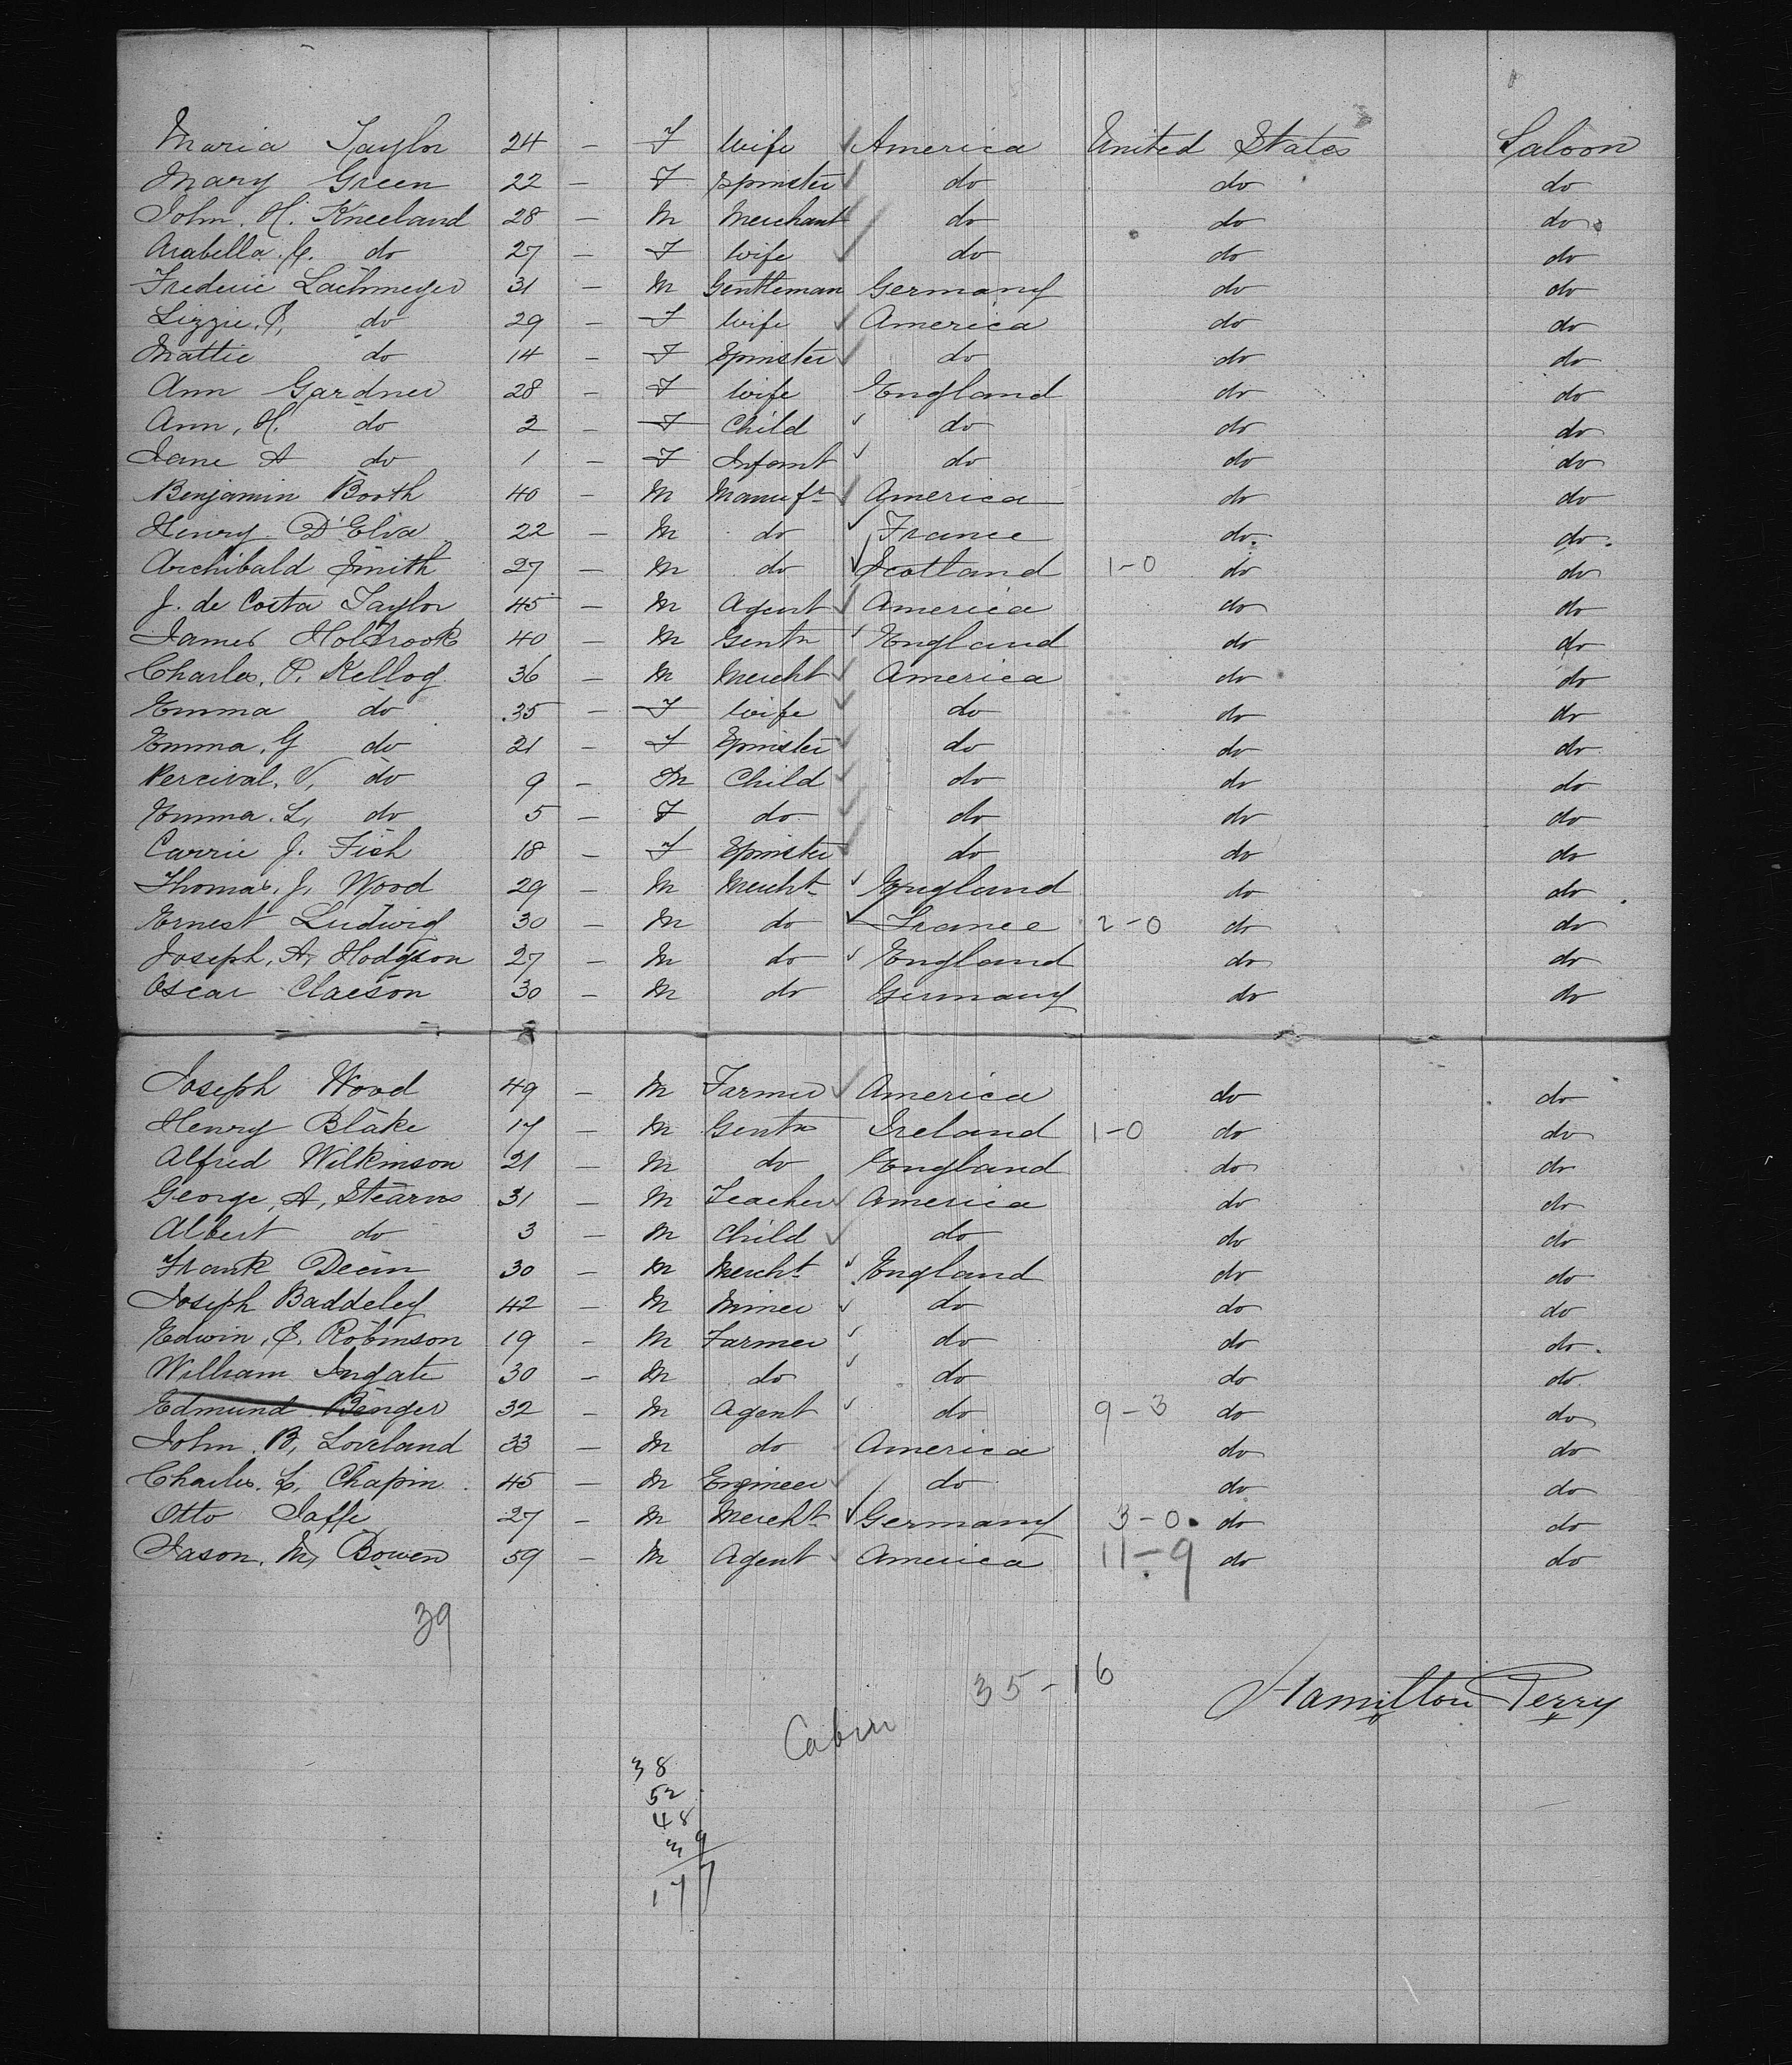 Maria Taylor 24 — F Wife America United States Saloon
Mary Green 22 — F Spinster do do do
John. H. Kneeland 28 — M Merchant do do do
Arabella. C. do 27 — F Wife do do do
Frederic Lachmeyer 31 — M Gentleman Germany do do
Lizzie. P, do 29 — F Wife America do do
Mattie do 14 — F Spinster do do do
Ann Gardner 28 — F Wife England do do
Ann, H. do 2 — F Child do do do
Jane A do 1 — F Infant do do do
Benjamin Booth 40 — M Manufr America do do
Henry D'Elva 22 — M do France do do
Archibald Smith 27 — M do Scotland 1-0 do do
J. de Costa Taylor 45 — M Agent America do do
James Holbrook 40 — M Gentn England do do
Charles. P. Kellog 36 — M Mercht America do do
Emma do 35 — F Wife do do do
Emma, G do 21 — F Spinster do do do
Percival. V, do 9 — M Child do do do
Emma. L, do 5 — F do do do do
Carrie J. Fish 18 — F Spinster do do do
Thomas, J, Wood 29 — M Mercht England do do
Ernest Ludwig 30 — M do France 2-0 do do
Joseph, A, Hodgson 27 — M do England do do
Oscar Claeson 30 — M do Germany do do
Joseph Wood 49 — M Farmer America do do
Henry Blake 17 — M Gentn Ireland 1-0 do do
Alfred Wilkinson 21 — M do England do do
George, A, Stearns 31 — M Teacher America do do
Albert do 3 — M Child do do do
Frank Dean 30 — M Mercht England do do
Joseph Baddeley 42 — M Miner do do do
Edwin, S. Robinson 19 — M Farmer do do do
William Ingate 30 — M do do do do
Edmund Benger 32 — M Agent do 9-3 do do
John. B, Loveland 33 — M do America do do
Charles. L, Chapin 45 — M Engineer do do do
Otto Jaffe 27 — M Mercht Germany 3-0 do do
Jason, M, Bowen 59 — M Agent America 11-9 do do
39
35-16
Hamilton Perry
Cabin
38
52
48
39
177